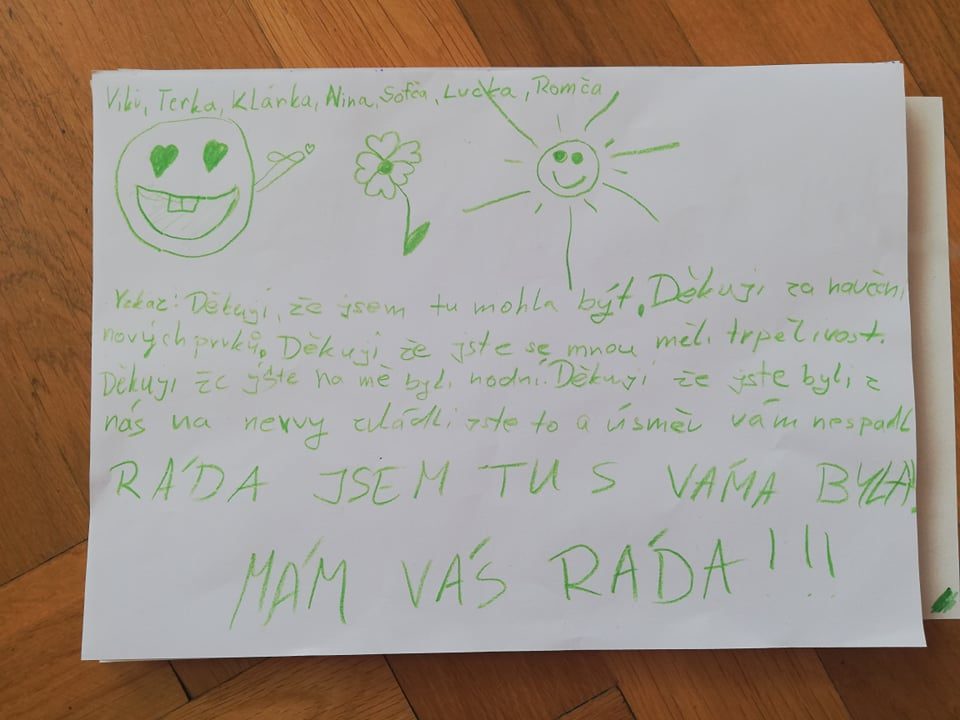 Viki, Terka, Klárka, Nina, Sofča, Lucka, Romča
Vzkaz: Děkuji, že jsem tu mohla být. Děkuji za naučení
nových prvků. Děkuji že jste se mnou měli trpělivost.
Děkuji že jste na mě byli hodní. Děkuji že jste byli z
nás na nervy zvládli jste to a úsměv vám nespadl
RÁDA JSEM TU S VÁMA BYLA!
MÁM VÁS RÁDA!!!